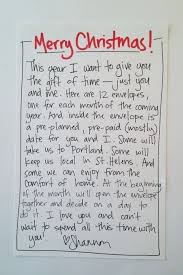 Merry Christmas!
This year I want to give you
the gift of time - just you
and me. Here are 12 envelopes,
one for each month of the coming
year. And inside the envelope is
a pre-planned, pre-paid (mostly)
date for you and I. Some will
take us to Portland. Some will
keep us local in St. Helens. And
some we can enjoy from the
comfort of home. At the beginning
of the month we'll open the envelope
together and decide on a day to
do it. I love you and can't
wait to spend all this time with
you! ♡Shannon